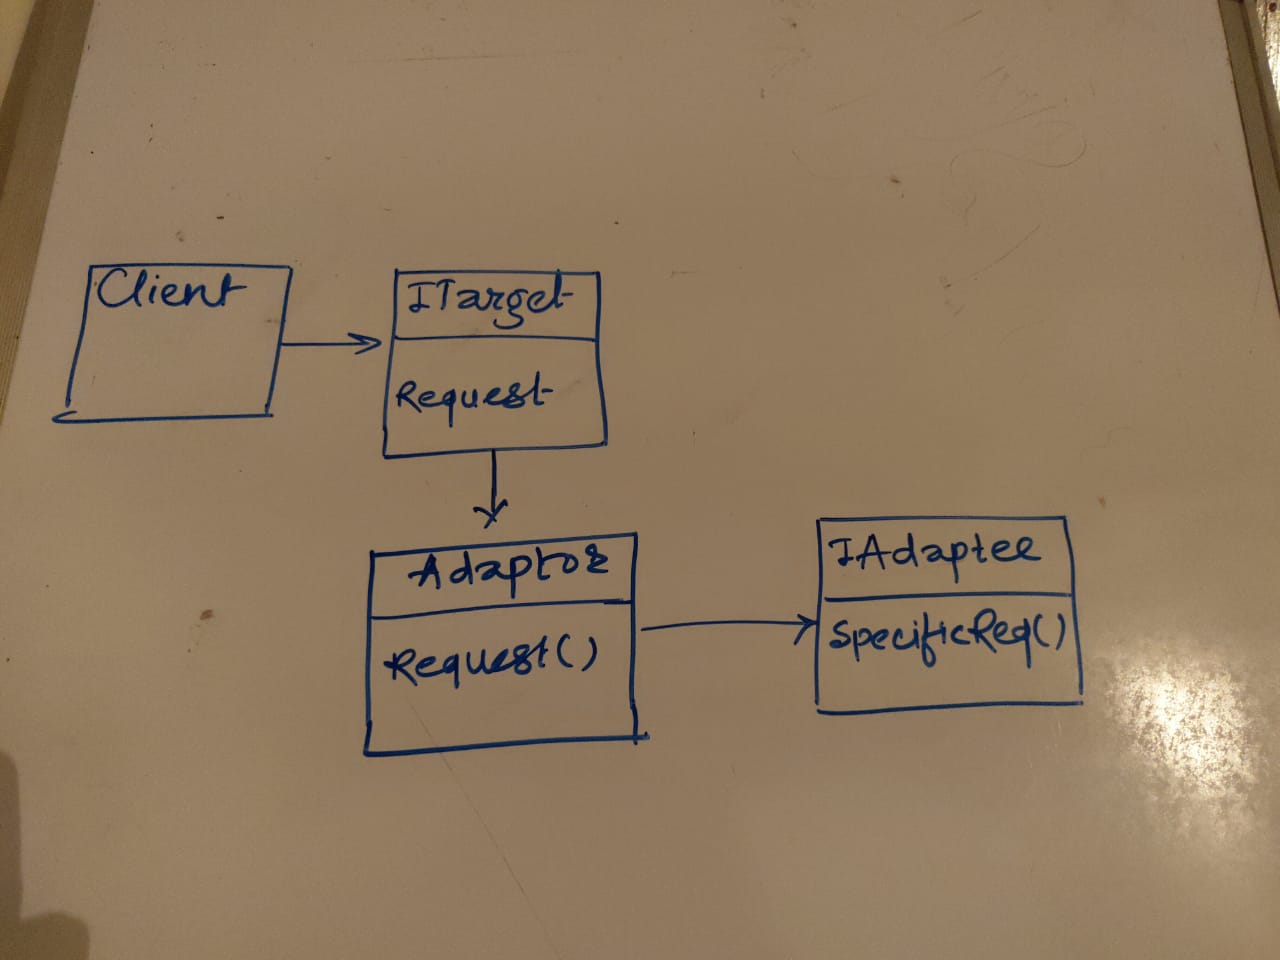 Client
ITarget
Request
Adaptor
Request()
IAdaptee
SpecificReq()